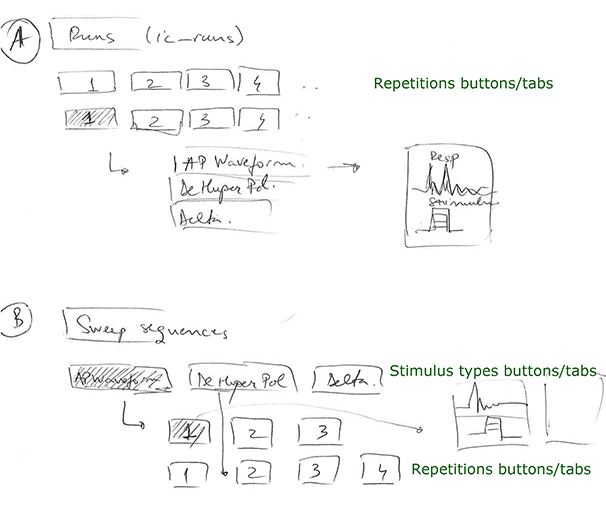 A Runs (ic_runs)
1 2 3 4 ..
Repetitions buttons/tabs
1 2 3 4 ..
AP Waveform.
DeHyperPol.
Delta.
Resp
Stimulus
B Sweep sequences
APWaveform DeHyperPol Delta.
Stimulus types buttons/tabs
1 2 3
1 2 3 4
Repetitions buttons/tabs